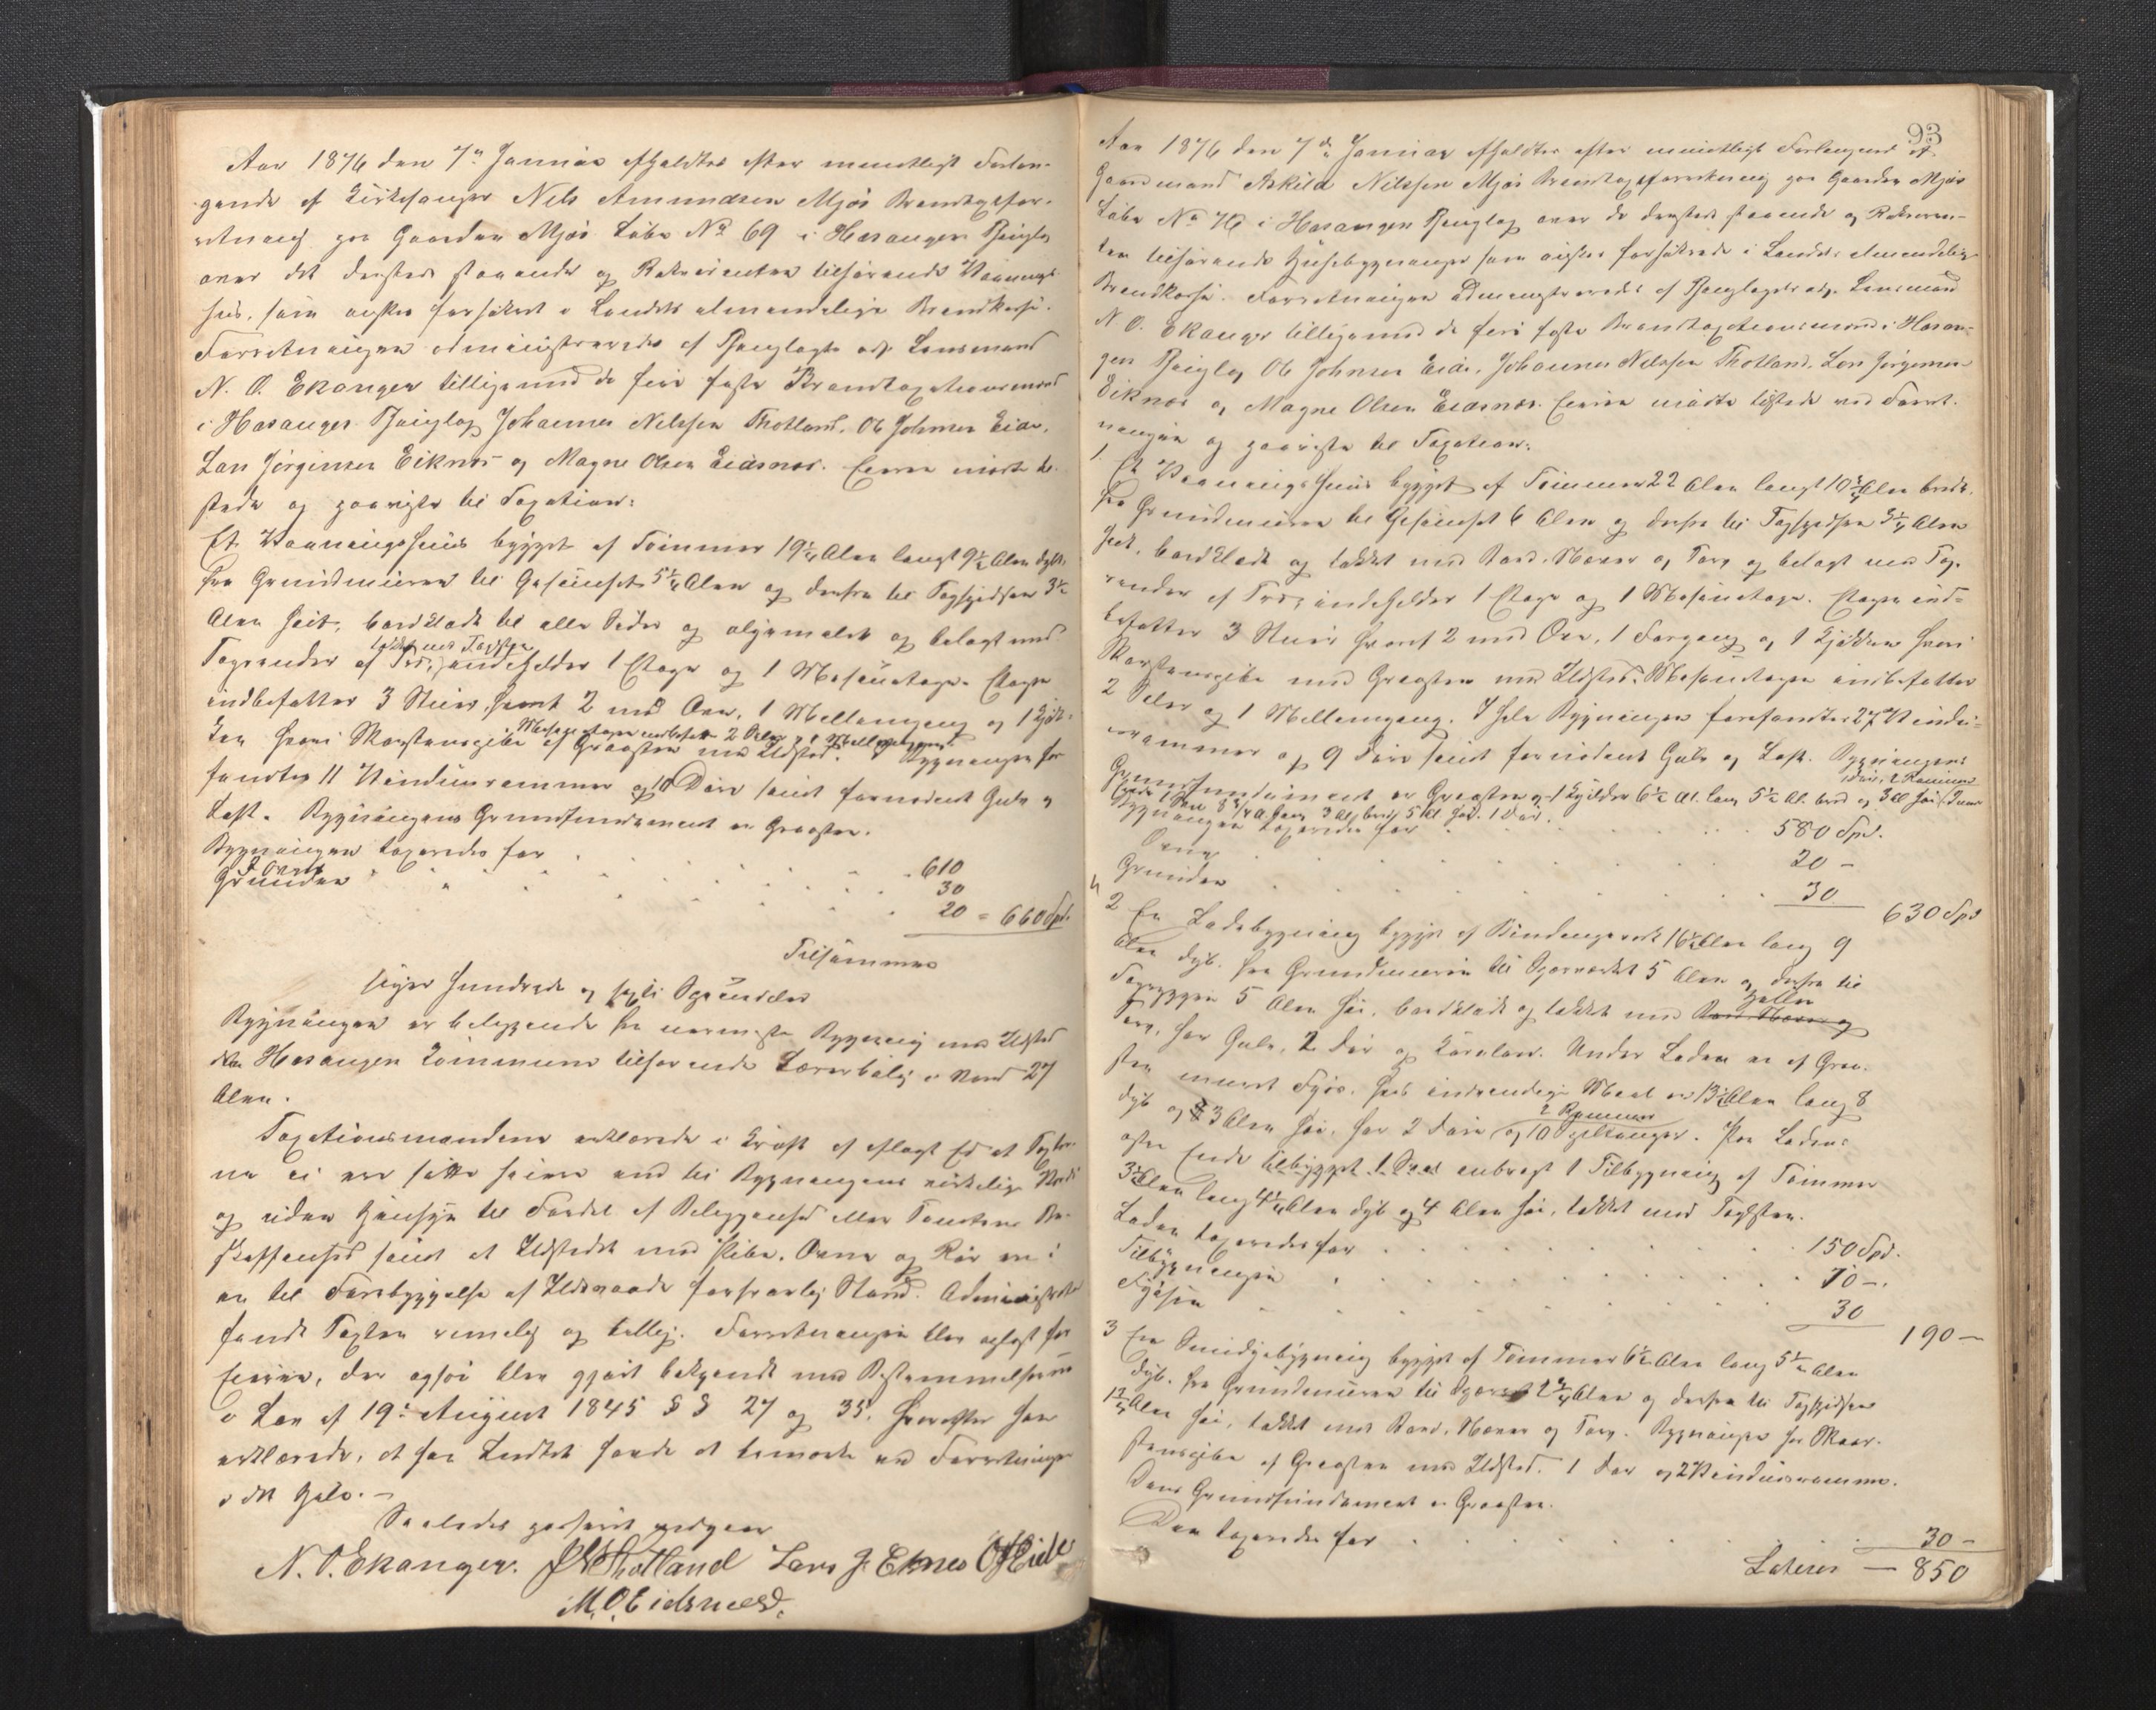 Aar 1876 den 7de Januar afholdtes efter mundtligt Forlan-
gende af Kirkesanger Nils Amundsen Mjøs Brandtaxtfor-
retning paa Gaarden Mjøs Løbe No 69 i Hosanger Thinglag
over det dersteds staaende og Rekvirenten tilhørende Vaanings-
huus, som ønskes forsikret i Landets almindelige Brandkasse.
Forretningen administreredes af Thinglagets adj. Lensmand
N. O. Ekanger tilligemed de fire faste Brandtaxationsmænd
i Hosanger Thinglag Johannes Nilssen Thotland, Ole Johnsen Eide,
Lars Jørgensen Eiknes og Magne Olsen Eidsnes. Eieren mødte til-
stede og paaviste til Taxation:
Et Vaaningshuus bygget af Tømmer 19 1/4 Alen langt 9 1/2 Alen dybt,
fra Grundmuren til Gesimset 5 1/4 Alen og derfra til Tagspidsen 3 1/2
Alen høit, bordklædt til alle Sider og oljemalet og belagt med
takket med Tagsten
Tagrender af Træ, indeholder 1 Etage og 1 Mesaneetage. Etagen
indbefatter 3 Stuer, hvoraf 2 med Ovn, 1 Mellemgang og 1 Kjøk-
Mesanetagen indbefatter 2 Seler og 1 Mellemgang.
ken hvori Skorstenspibe af Graasten med Ildsted. I Bygningen for-
fandtes 11 Vinduesrammer og 10 Døre samt fornødent Gulv og
Loft. Bygningens Grundfundament er Graasten.
Bygningen taxeredes for . . . 610
2 Ovne . . . 30
Grunden . . . 20 = 660 Spd.
Tilsammen
sex hundrede og sexti Speciedaler
Bygningen er beliggende fra nærmeste Bygning med Ildsted
den Hosanger Kommune tilhørende Lærerbolig i Nord 27
Alen.
Taxationsmændene erklærede i Kraft af aflagt Ed at Taxter-
ne ei ere satte høiere end til Bygningens virkelige Værdi
og uden Hensyn til Fordel af Beliggenhed eller Tomtens Be-
skaffenhed samt at Ildstedet med Pibe, Ovne og Rør er i
en til Forebyggelse af Ildsvaade forsvarlig Stand. Administrator
fandt Taxten rimelig og billig. Forretningen blev oplæst for
Eieren, der ogsaa blev gjort bekjendt med Bestemmelserne
i Lov af 19de August 1845 §§ 27 og 35, hvorefter han
erklærede, at han Intet havde at bemærke ved Forretningen
i det Hele. –
Saaledes passeret vedgaar
N. O. Ekanger. J N Thotland Lars J. Eknes O J Eide
M. O. Eidsnæss.
93
Aar 1876 den 7de Januar afholdtes efter mundtligt Forlangende af
Gaardmand Askild Nilssen Mjøs Brandtaxtforretning paa Gaarden Mjøs
Løbe No 70 i Hosanger Thinglag over de dersteds staaende og Rekviren-
ten tilhørende Huusebygninger som ønskes forsikrede i Landets almindelige
Brandkasse. Forretningen administreredes af Thinglagets adj. Lensmand
N O. Ekanger tilligemed de fire faste Brandtaxationsmænd i Hosan-
ger Thinglag Ole Johnsen Eide, Johannes Nilssen Thotland, Lars Jørgensen
Eiknes og Magne Olsen Eidsnes. Eieren mødte tilstede ved Forret-
ningen og paaviste til Taxation:
1. Et Vaaningshuus bygget af Tømmer 22 Alen langt 10 3/4 Alen bredt,
fra Grundmuren til Gesimset 6 Alen og derfra til Tagspidsen 3 1/4 Alen
høit, bordklædt og takket med Bord, Næver og Torv og belagt med Tag-
render af Træ; indeholder 1 Etage og 1 Mesanetage. Etagen ind-
befatter 3 Stuer hvoraf 2 med Ovn, 1 Forgang og 1 Kjøkken hvori
Skorstenspibe med Graasten med Ildsted. Mesanetagen indbefatter
2 Seler og 1 Mellemgang. I hele Bygningen forefandtes 27 Vindu-
esrammer og 9 Døre samt fornødent Gulv og Loft. Bygningens
Grundfundament er Graasten og 1 Kjelder 6 1/2 Al. lang 5 1/2 Al. bred og 3 Al høi,
1 Dør, 2 Rammer
3 Al bred 5 Al høi. 1 Dør.
Bygningen taxeredes for . . . 580 Spd.
Ovne . . . 20 –
Grunden . . . 30 630 Spd
2 En Ladebygning bygget af Bindingsverk 16 1/2 Alen lang 9
Alen dyb. fra Grundmuren til Sperværket 5 Alen og derfra til
Tagryggen 5 Alen høi, bordklædt og takket med
Heller
Torv, har Gulv, 2 Dør og Kornlave. Under Laden er af Graa-
sten muret Fjøs, hvis indvendige Maal er 13 1/2 Alen lang 8
dyb og 3 Alen høi, har 2 Døre og 10
2 Rammer
. Paa Ladens
østre Ende anbragt 1 Tilbygning af Tømmer
3 1/2 Alen lang 4 1/4 Alen dyb og 4 Alen høi, takket med Tagsten.
Laden taxeredes for . . . 150 Spd.
Tilbygningen . . . 10 –.
Fjøsen . . . 30 190 –
3 En Smidjebygning bygget af Tømmer 6 1/2 Alen lang 5 1/2 Alen
dyb. fra Grundmuren til Sperret 2 3/4 Alen og derfra til Tagspidsen
1 3/4 Alen høi, takket med Bord, Næver og Torv. Bygningen har Skor-
stenspibe af Graasten med Ildsted. 1 Dør og 2 Vinduesramme.
Dens Grundfundament er Graasten.
Den taxeredes for . . . 30 –
Lateres – 850